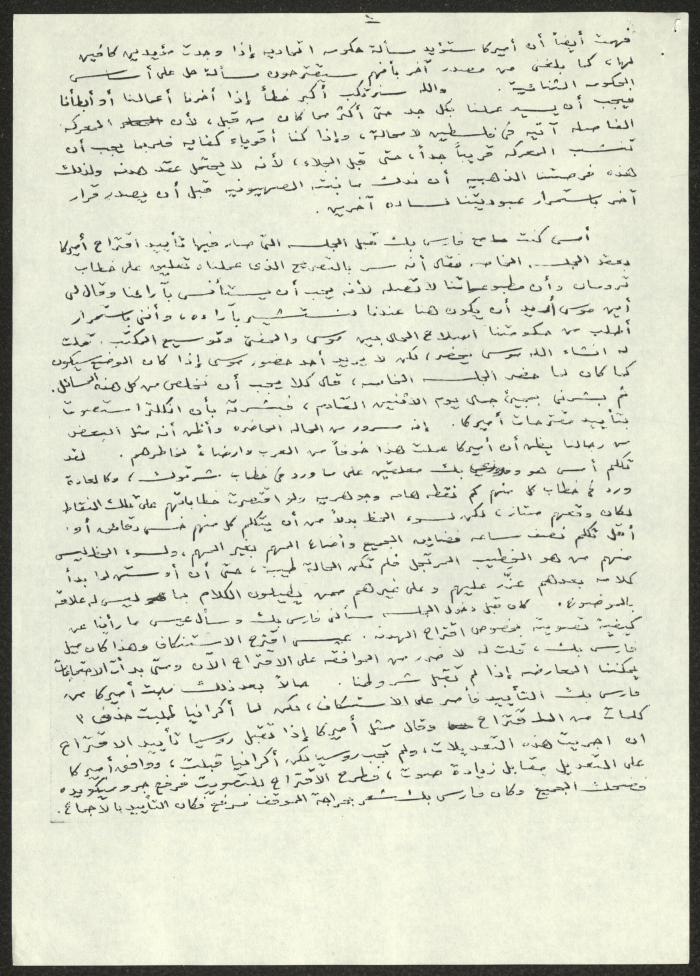 فهمت أيضاً أن أميركا ستؤيد مسألة حكومة اتحادية إذا وجدت مؤيدين كافين
لها، كما بلغني من مصدر آخر بأنهم سيقترحون مسألة حل على أساس
الحكومة الثنائية. والله سنرتكب أكبر خطأ إذا أخرنا أعمالنا أو أبطأنا
فيجب أن يسير عملنا بكل جد حتى أكثر مما كان من قبل، لأن المعركة
الفاصلة آتية في فلسطين لا محالة، وإذا كنا أقوياء كفاية فلربما يجب أن
تنشب المعركة قريباً جداً، حتى قبل الجلاء، لأنه لا يحتمل عقد هدنة ولذلك
هذه فرصتنا الذهبية أن ندك ما بنته الصهيونية قبل أن يصدر قرار
آخر باستمرار عبوديتنا لسادة آخرين.
أمس كنت مع فارس بك قبل الجلسة التي صار فيها تأييد اقتراح أميركا
بعقد الجلسة الخاصة فقال أنه سر بالتصريح الذي عملناه تعليق على خطاب
ترومان وأن مطبوعاتنا لا تصله لأنه يجب أن يستأنس بآرائنا وقال لي
أين موسى أريد أن يكون هنا عندنا لنستشيره بآراءه، وأنني باستمرار
أطلب من حكومتنا اصلاح الحال بين موسى والمفتي وتوسيع المكتب. قلت
له انشاء الله موسى يحضر، لكن لا يريد أحد حضور موسى إذا كان الوضع سيكون
كما كان لما حضر الجلسة الخاصة، قال كلا يجب أن نخلص من كل هذه المسائل.
ثم بشرني بمجيئ جمال يوم الاثنين القادم، فبشرته بأن انكلترا ستصوت
بتأييد مقترحات أميركا. إنه مسرور من الحالة الحاضرة وأظن أنه مثل البعض
من رجالنا يظن أن أميركا عملت هذا خوفاً من العرب وارضاءً لخاطرهم. لقد
تكلم أمس هو و بك معلقين على ما ورد في خطاب شرتوك، وكالعادة
ورد في خطاب كل منهم كم نقطة هامة وجوهرية ولو اقتصرت خطاباتهم على تلك النقاط
لكان وقعهم ممتاز، لكن لسوء الحظ بدلاً من أن يتكلم كل منهم خمس دقائق أو
أقل تكلم نصف ساعة فضايق الجميع وأضاع المهم بغير المهم، ولسوء الحظ ليس
منهم من هو الخطيب المرتجل فلم تكن الحالة طيبة، حتى أن أوستن لما بدأ
كلامه بعدهم عرّ عليهم وعلى غيرهم ممن يطيلون الكلام بما ليس له علاقة
بالموضوع. كان قبل دخول الجلسة سألني فارس بك وسأل عيسى ما رأينا عن
كيفية تصويته بخصوص اقتراح الهدنة. عيسى اقترح الاستنكاف وهذا كان ميل
فارس بك، قلت له لا ضرر من الموافقة على الاقتراح الآن ومتى بدأت الاجتماعات
يمكننا المعارضة إذا لم تقبل شروطنا. حالاً بعد ذلك طلبت أميركا من
فارس بك التأييد فأصر على الاستنكاف، لكن لما أكرانيا طلبت حذف ٣
كلمات من الاقتراح وقال ممثل أميركا إذا تقبل روسيا تأييد الاقتراح
ان اجريت هذه التعديلات، ولم تجب روسيا لكن أكرانيا قبلت، ووافق أميركا
على التعديل مقابل زيادة صوت، فطرح الاقتراح للتصويت فرفع جروميكو يده
فضحك الجميع وكان فارس بك شعر بحراجة الموقف فرفع فكان التأييد بالاجماع.